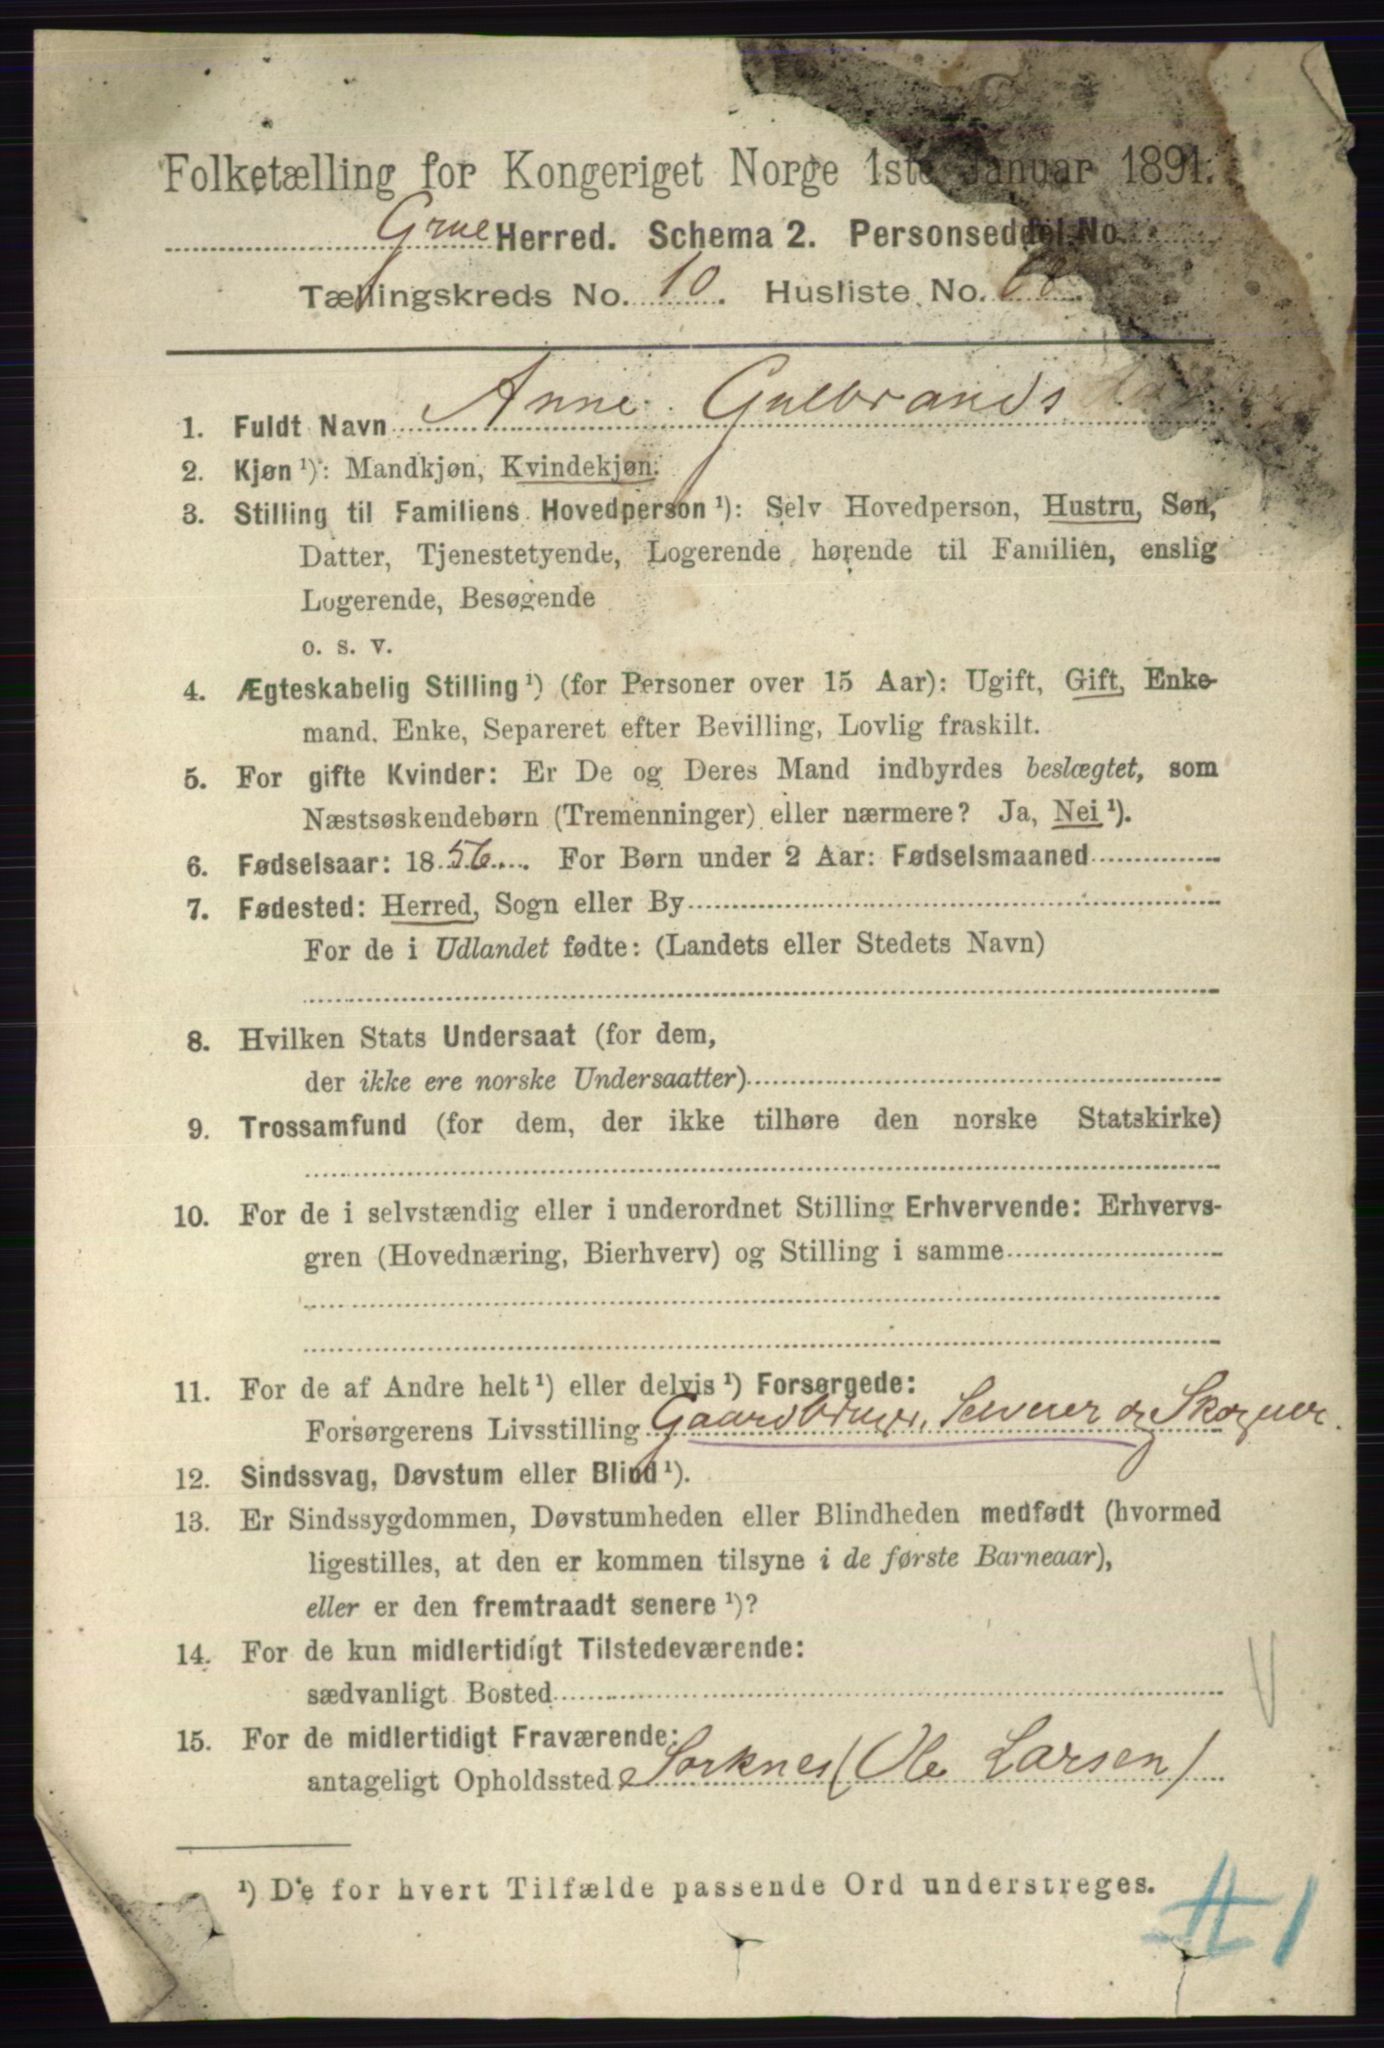 Folketælling for Kongeriget Norge 1ste Januar 1891.
Grue Herred. Schema 2. Personseddel No.
Tællingskreds No. 10. Husliste No.
1. Fuldt Navn Anne Gulbrandsdat
2. Kjøn ¹): Mandkjøn, Kvindekjøn.
3. Stilling til Familiens Hovedperson ¹): Selv Hovedperson, Hustru, Søn,
Datter, Tjenestetyende, Logerende hørende til Familien, enslig
Logerende, Besøgende
o. s. v.
4. Ægteskabelig Stilling ¹) (for Personer over 15 Aar): Ugift, Gift, Enke-
mand, Enke, Separeret efter Bevilling, Lovlig fraskilt.
5. For gifte Kvinder: Er De og Deres Mand indbyrdes beslægtet, som
Næstsøskendebørn (Tremenninger) eller nærmere? Ja, Nei ¹).
6. Fødselsaar: 1856. For Børn under 2 Aar: Fødselsmaaned
7. Fødested: Herred, Sogn eller By
For de i Udlandet fødte: (Landets eller Stedets Navn)
8. Hvilken Stats Undersaat (for dem,
der ikke ere norske Undersaatter)
9. Trossamfund (for dem, der ikke tilhøre den norske Statskirke)
10. For de i selvstændig eller i underordnet Stilling Erhvervende: Erhvervs-
gren (Hovednæring, Bierhverv) og Stilling i samme
11. For de af Andre helt ¹) eller delvis ¹) Forsørgede:
Forsørgerens Livsstilling Gaardbruger, Selveier og Skogeier.
12. Sindssvag, Døvstum eller Blind ¹).
13. Er Sindssygdommen, Døvstumheden eller Blindheden medfødt (hvormed
ligestilles, at den er kommen tilsyne i de første Barneaar),
eller er den fremtraadt senere ¹)?
14. For de kun midlertidigt Tilstedeværende:
sædvanligt Bosted
15. For de midlertidigt Fraværende:
antageligt Opholdssted Sorknes (Ole Larsen)
¹) De for hvert Tilfælde passende Ord understreges.